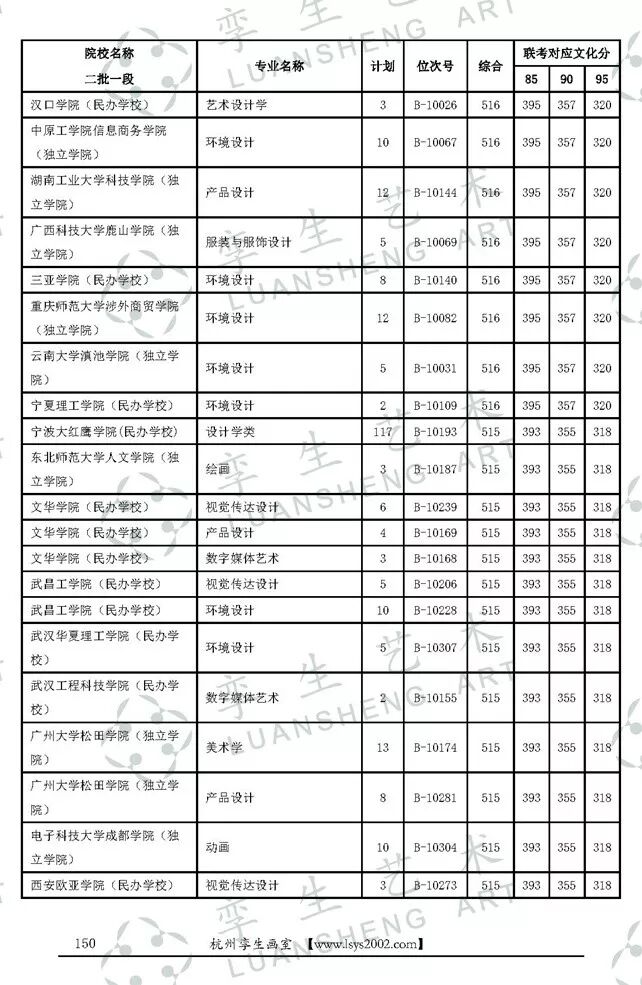 院校名称 二批一段 专业名称 计划 位次号 综合 联考对应文化分
85 90 95
汉口学院（民办学校） 艺术设计学 3 B-10026 516 395 357 320
中原工学院信息商务学院（独立学院） 环境设计 10 B-10067 516 395 357 320
湖南工业大学科技学院（独立学院） 产品设计 12 B-10144 516 395 357 320
广西科技大学鹿山学院（独立学院） 服装与服饰设计 5 B-10069 516 395 357 320
三亚学院（民办学校） 环境设计 8 B-10140 516 395 357 320
重庆师范大学涉外商贸学院（独立学院） 环境设计 12 B-10082 516 395 357 320
云南大学滇池学院（独立学院） 环境设计 5 B-10031 516 395 357 320
宁夏理工学院（民办学校） 环境设计 2 B-10109 516 395 357 320
宁波大红鹰学院(民办学校) 设计学类 117 B-10193 515 393 355 318
东北师范大学人文学院（独立学院） 绘画 3 B-10187 515 393 355 318
文华学院（民办学校） 视觉传达设计 6 B-10239 515 393 355 318
文华学院（民办学校） 产品设计 4 B-10169 515 393 355 318
文华学院（民办学校） 数字媒体艺术 3 B-10168 515 393 355 318
武昌工学院（民办学校） 视觉传达设计 5 B-10206 515 393 355 318
武昌工学院（民办学校） 环境设计 10 B-10228 515 393 355 318
武汉华夏理工学院（民办学校） 环境设计 5 B-10307 515 393 355 318
武汉工程科技学院（民办学校） 数字媒体艺术 2 B-10155 515 393 355 318
广州大学松田学院（独立学院） 美术学 13 B-10174 515 393 355 318
广州大学松田学院（独立学院） 产品设计 8 B-10281 515 393 355 318
电子科技大学成都学院（独立学院） 动画 10 B-10304 515 393 355 318
西安欧亚学院（民办学校） 视觉传达设计 3 B-10273 515 393 355 318
150 杭州孪生画室 【www.lsys2002.com】
孪生艺术
LUANSHENG ART